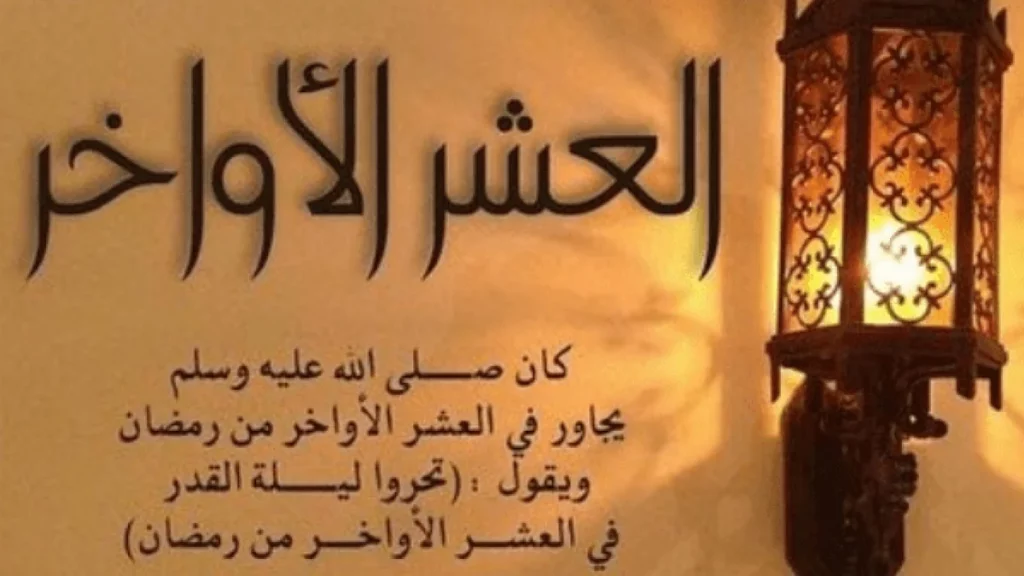 العشر الأواخر
كان صلى الله عليه وسلم
يجاور في العشر الأواخر من رمضان
ويقول : (تحروا ليلة القدر
في العشر الأواخر من رمضان)